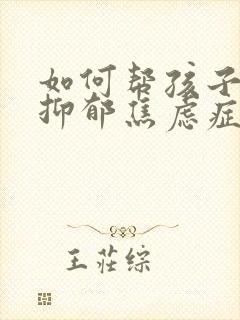 如何帮孩子
抑郁焦虑症
王莊综